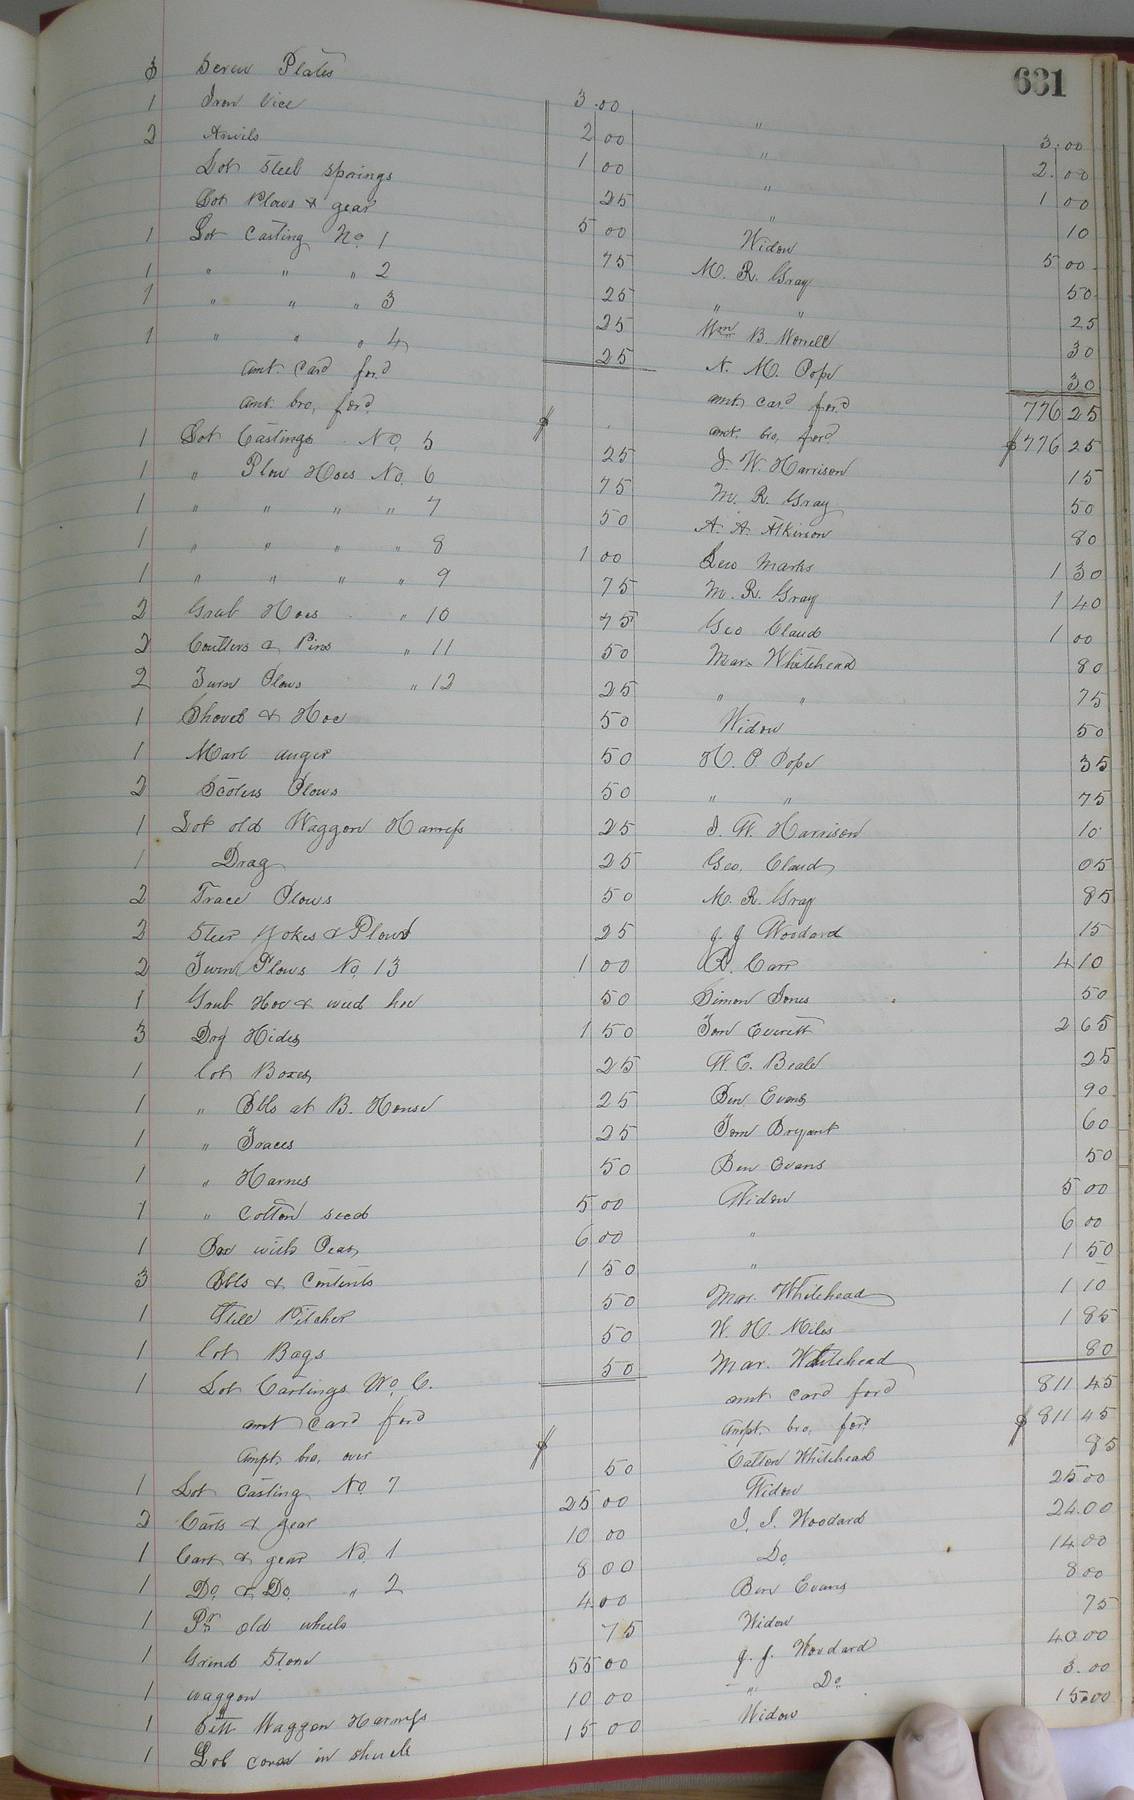 631
3 Screw Plates 3.00 " 3.00
1 Iron Vice 2 00 " 2.00
2 Anvils 1 00 " 1 00
Lot Steel springs 25 " 10
Lot Plows & gear 5 00 Widow 5 00
1 Lot Casting No 1 75 M. R. Gray 50
1 " " " 2 25 " " 25
1 " " " 3 25 Wm B. Worrell 30
1 " " " 4 25 N. M. Pope 30
amt card ford amt card ford 776 25
amt. bro. ford $ amt. bro. ford $776 25
1 Lot Castings No. 5 25 J. W. Harrison 15
1 " Plow Hoes No. 6 75 M. R. Gray 50
1 " " " " 7 50 A. A. Atkinson 80
1 " " " " 8 1 00 Geo Marks 1 30
1 " " " " 9 75 M. R. Gray 1 40
2 Grub Hoes " 10 75 Geo Claud 1 00
2 Coulters & Pins " 11 50 Mar. Whitehead 80
2 Turn Plows " 12 25 " " 75
1 Shovel & Hoe 50 Widow 50
1 Marl auger 50 H. P. Pope 35
2 Scoters Plows 50 " " 75
1 Lot old Waggon Harness 25 J. W. Harrison 10
1 Drag 25 Geo. Claud 05
2 Trace Plows 50 M. R. Gray 85
2 Steer Yokes & Plows 25 J. J. Woodard 15
2 Turn Plows No. 13 1 00 R. Carr 4 10
1 Grub Hoe & weed hoe 50 Simon Jones 50
3 Dry Hides 1 50 Tom Everett 2 65
1 lot Boxes 25 W. E. Beale 25
1 " Bbls at B. House 25 Ben Evans 90
1 " Traces 25 Tom Bryant 60
1 " Harnes 50 Ben Evans 50
1 " Cotton seed 5 00 Widow 5 00
1 Box with Peas 6 00 " 6 00
3 Bbls & Contents 1 50 " 1 50
1 Pitcher 50 Mar. Whitehead 1 10
1 lot Bags 50 W. H. Miles 1 85
1 Lot Castings No. 6. 50 Mar. Whitehead 80
amt card ford amt card ford 811 45
ampt. bro. over $ ampt. bro. ford $811 45
1 Lot Casting No 7 50 Whitehead 85
2 Carts & gear 25 00 Widow 25 00
1 Cart & gear No. 1 10 00 J. J. Woodard 24.00
1 Do. & Do. " 2 8 00 Do. 14.00
1 Pr. old wheels 4.00 Ben Evans 8 00
1 Grind Stone 75 Widow 75
1 waggon 55 00 J. J. Woodard 40 00
1 Sett Waggon Harness 10 00 " Do 3.00
1 Lot corn in shuck 15 00 Widow 15.00